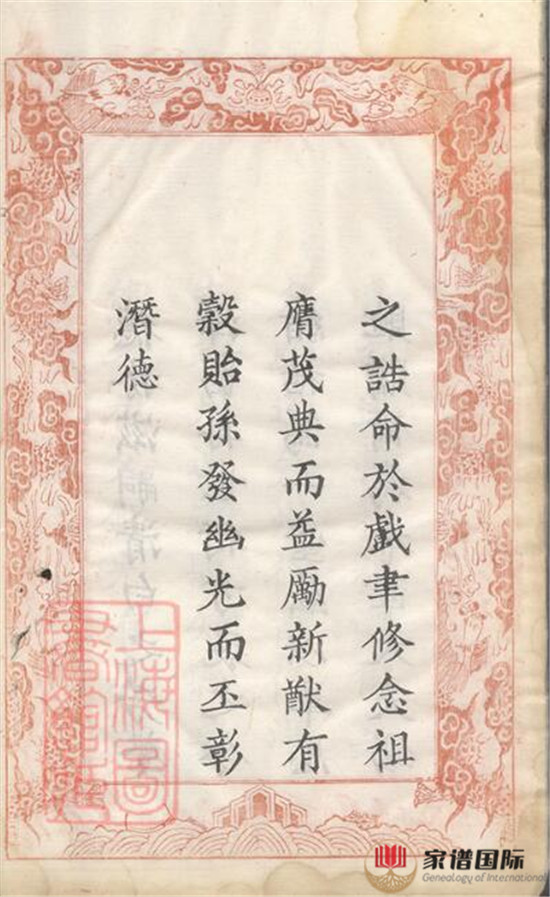 之誥命於戲聿修念祖
膺茂典而益勵新猷有
穀貽孫發幽光而丕彰
潛德
上海圖
書館藏
家谱国际
Genealogy of International